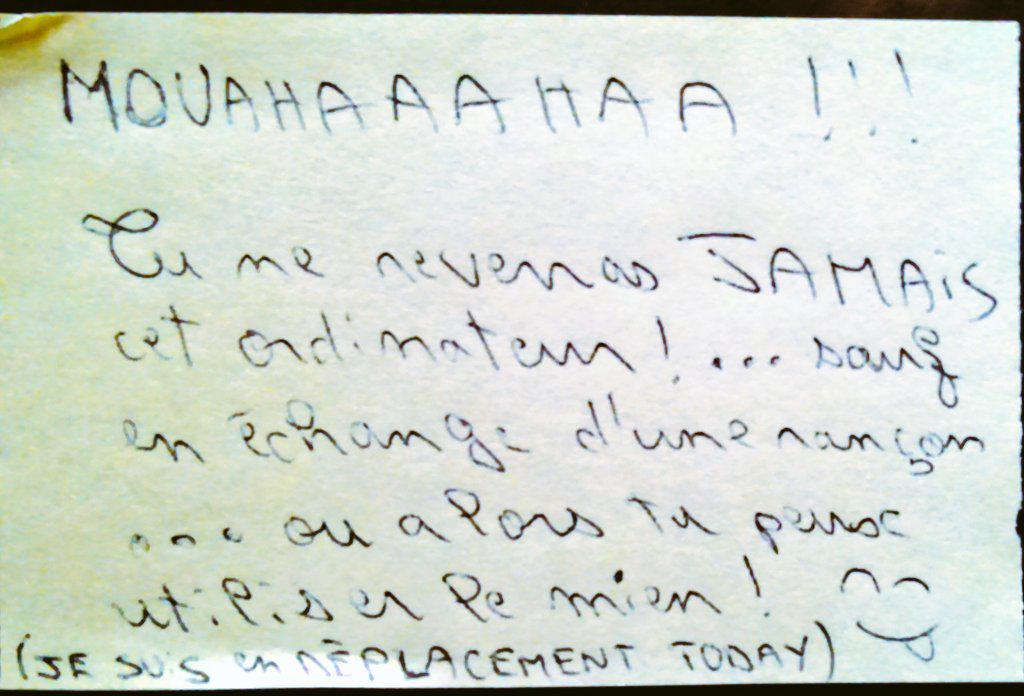 MOUAHAAAHAA !!!
Tu ne reverras JAMAiS
cet ordinateur ! ... sauf
en échange d'une rançon
... ou alors tu peux
utiliser le mien !
(JE SUiS en DÉPLACEMENT TODAY)